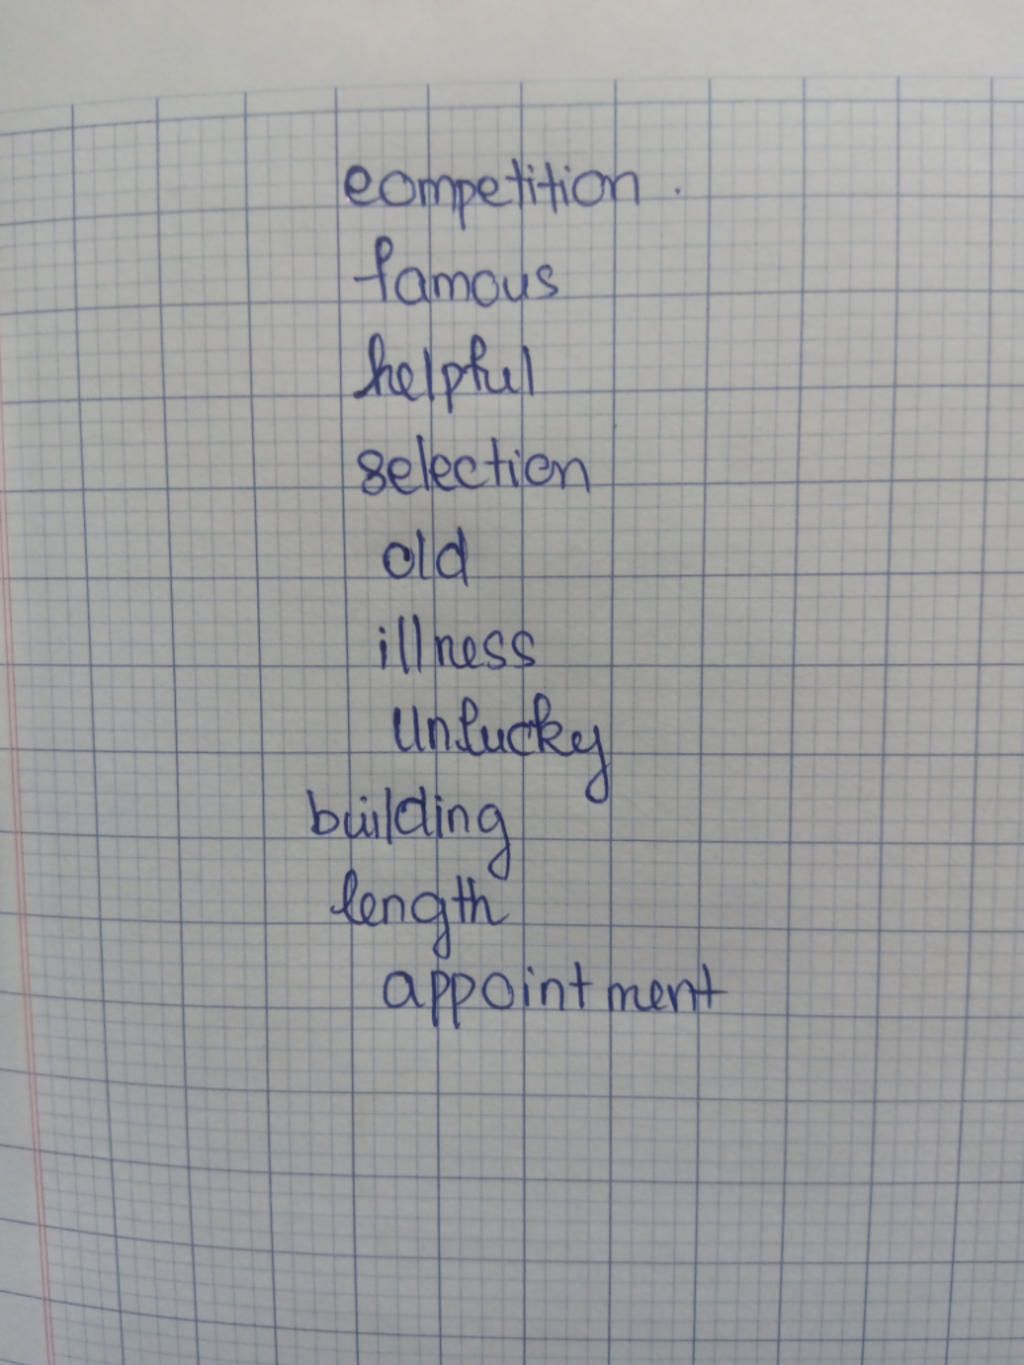 competition.
famous
helpful
selection
old
illness
unlucky
building
length
appointment